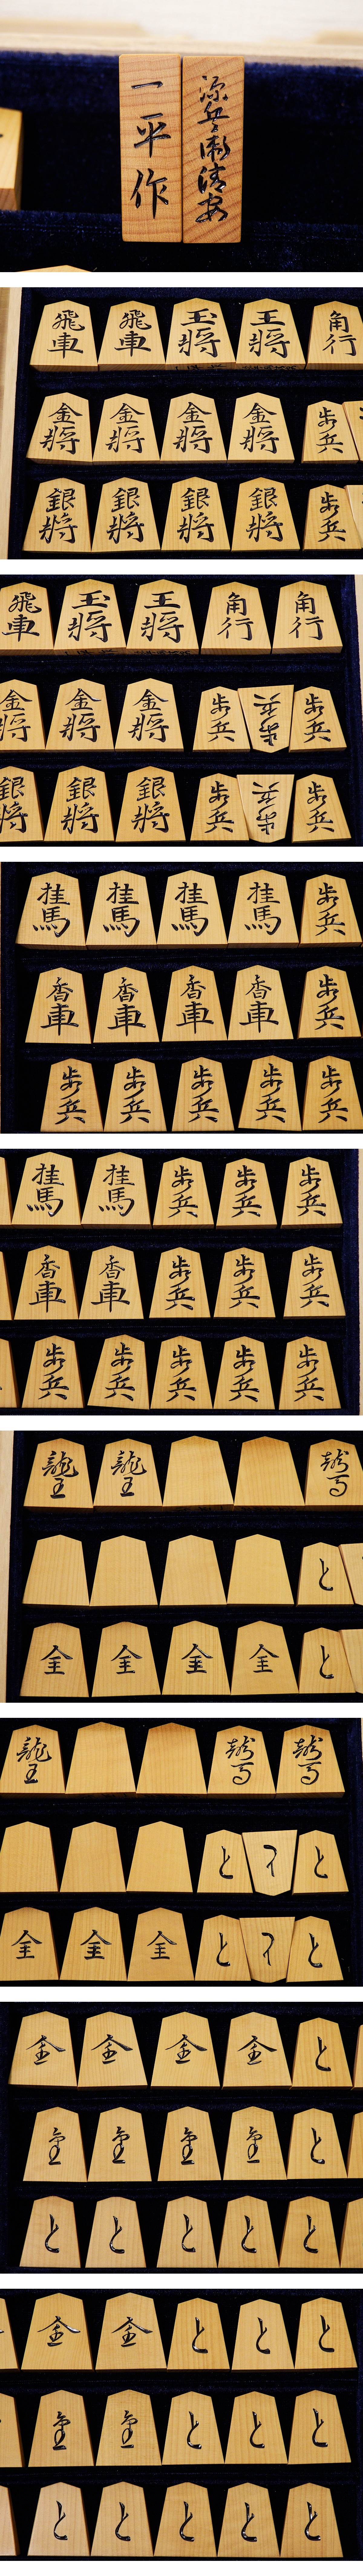 一平作
源兵衛清安
飛車 飛車 玉将 王将 角行
金将 金将 金将 金将 歩兵
銀将 銀将 銀将 銀将 歩兵
飛車 玉将 王将 角行 角行
金将 金将 金将 歩兵 歩兵 歩兵
銀将 銀将 銀将 歩兵 歩兵 歩兵
桂馬 桂馬 桂馬 桂馬 歩兵
香車 香車 香車 香車 歩兵
歩兵 歩兵 歩兵 歩兵 歩兵
桂馬 桂馬 歩兵 歩兵 歩兵
香車 香車 歩兵 歩兵 歩兵
歩兵 歩兵 歩兵 歩兵 歩兵
龍王 龍王 龍馬
と
全 全 全 全 と
龍王 龍馬 龍馬
と と と
全 全 全 と と と
金 金 金 金 と
金 金 金 金 と
と と と と と
金 金 と と と
金 金 と と と
と と と と と